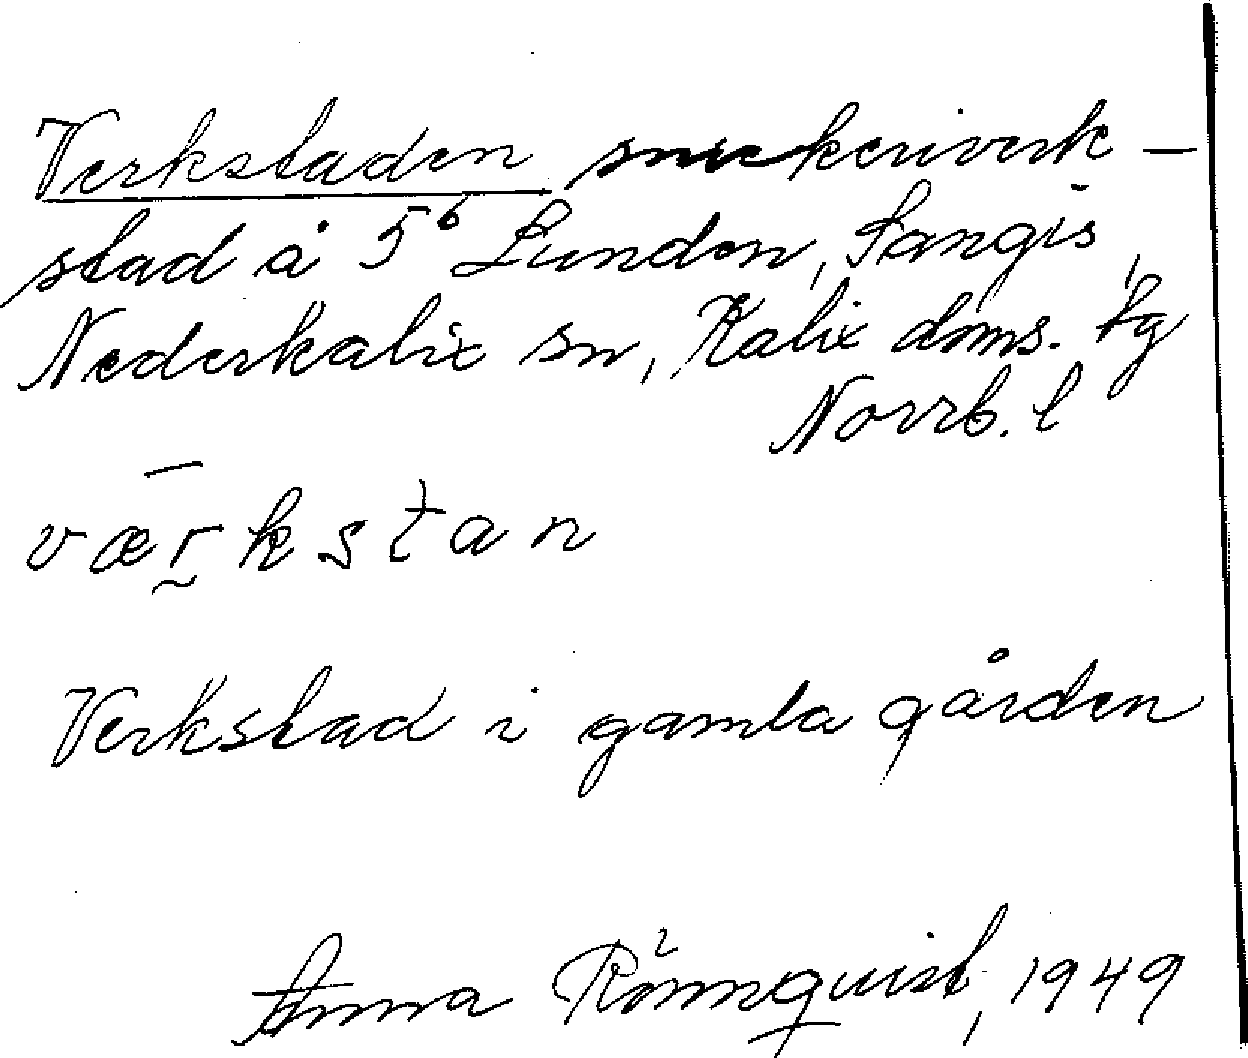 Verkstaden snickeriverk-
stad å 5⁶ Lunden, Sangis,
Nederkalix sn, Kalix doms. fg
Norrb. l
værkstan
Verkstad i gamla gården
Anna Rönnquist, 1949